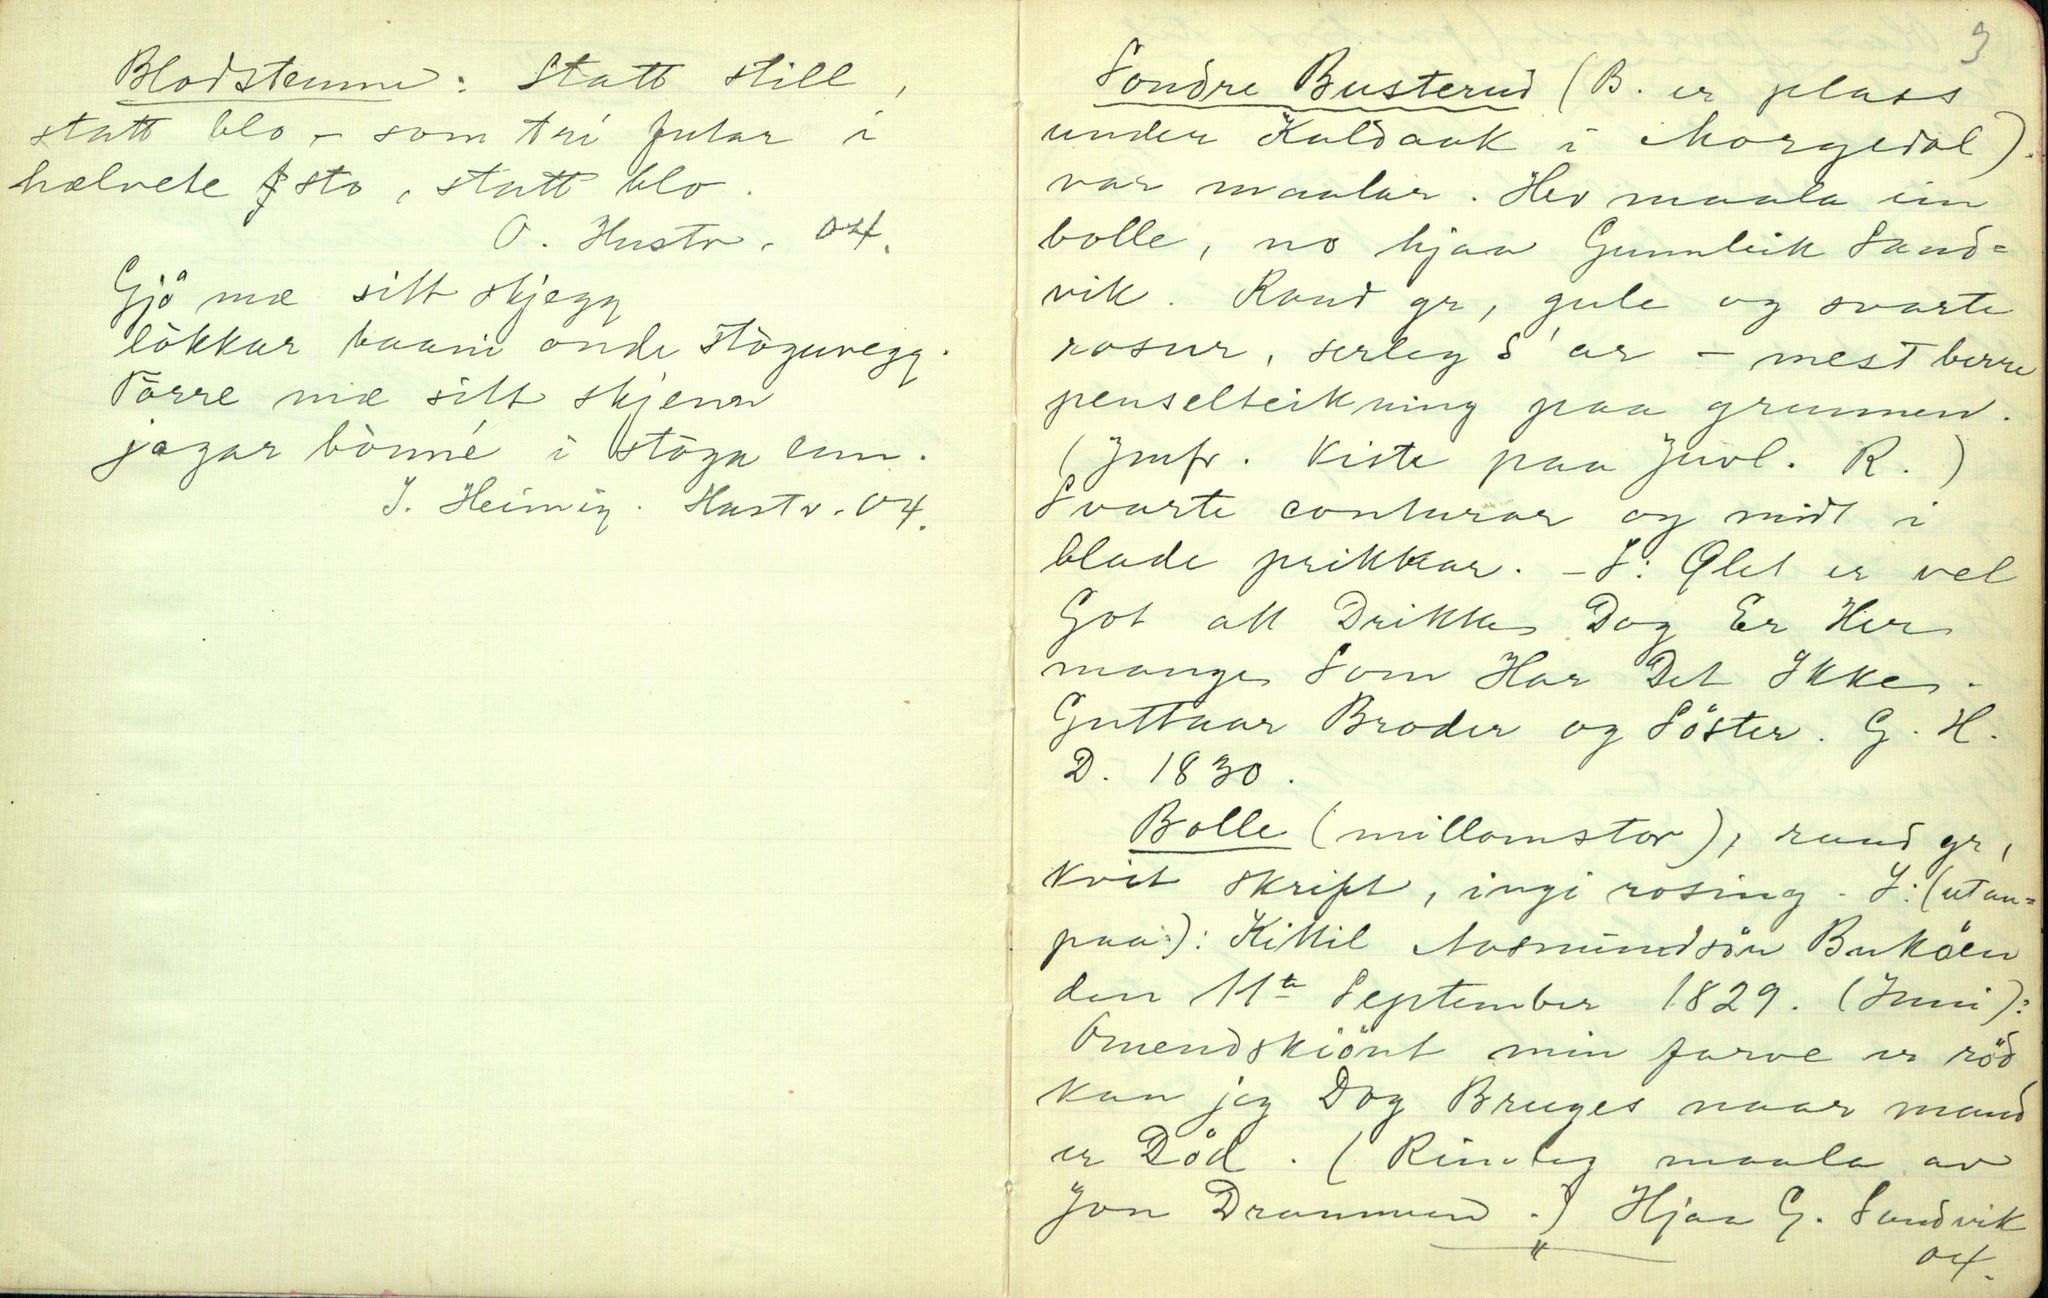 Blodstemne: Statt still,
statt blo - som tri futar i
helvete sto, statt blo.
O. Hustv. 04.
Gjö mæ sitt skjegg
lökkar baani onde stòguvegg.
Törre mæ sitt skjenn
jagar bònné i stòga enn.
J. Heimig. Hustv. 04.
3
Söndre Busterud (B. er plass
under Kaldaak i Morgedal).
var maalar. Hev maala ein
bolle, no hjaa Gunnleik Sand=
vik. Raud gr, gule og svarte
rosur, serleg S'ar - mest berre
penselteikning paa grunnen.
(Jmfr. Kiste paa Juvl. R.)
Svarte conturar og midt i
blade prikkar. - I: Ølet er vel
Got att Drikke Dog Er Her
mange Som Har Det Ikke.
Guttaar Broder og Söster. G. H.
D. 1830.
Bolle (millomstor), raud gr,
kvit skrift, ingi rosing. I: (utan=
paa): Kittil Aasmundsön Buköen
den 11te September 1829. (Inni):
Omendskiönt min farve er röd
kan jeg Dog Bruges naar mand
er Död. (Rimeleg maala av
Jon Drammen.) Hjaa G. Sandvik
04.